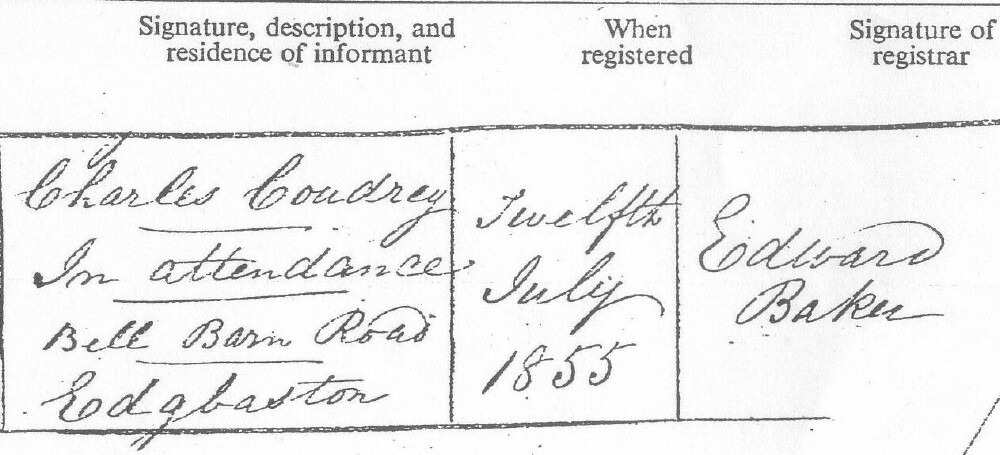 Signature, description, and
residence of informant
When
registered
Signature of
registrar
Charles Coudrey
In attendance
Bell Barn Road
Edgbaston
Twelfth
July
1855
Edward
Baker